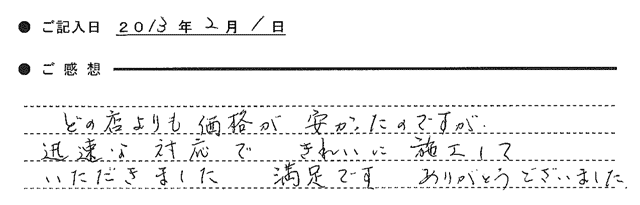 ● ご記入日 2013年2月1日
● ご感想
どの店よりも価格が 安かったのですが、
迅速な 対応で きれいに 施工して
いただきました 満足です ありがとうございました